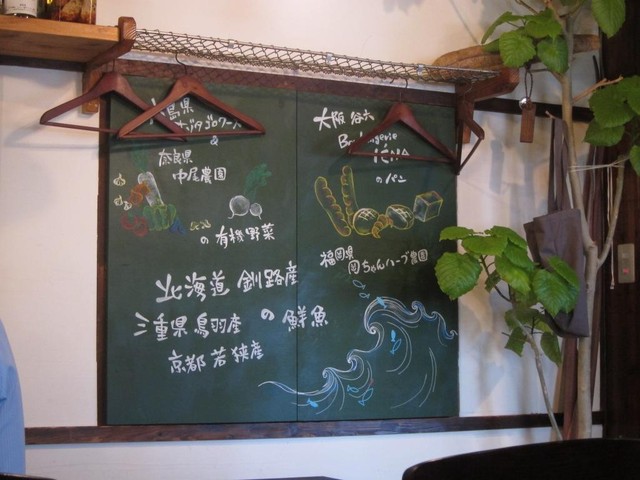 島県
&
奈良県
中尾農園
の有機野菜
大阪 谷六
Boulangerie
のパン
福岡県
岡ちゃんハーブ農園
北海道 釧路産
三重県 鳥羽産 の鮮魚
京都 若狭産